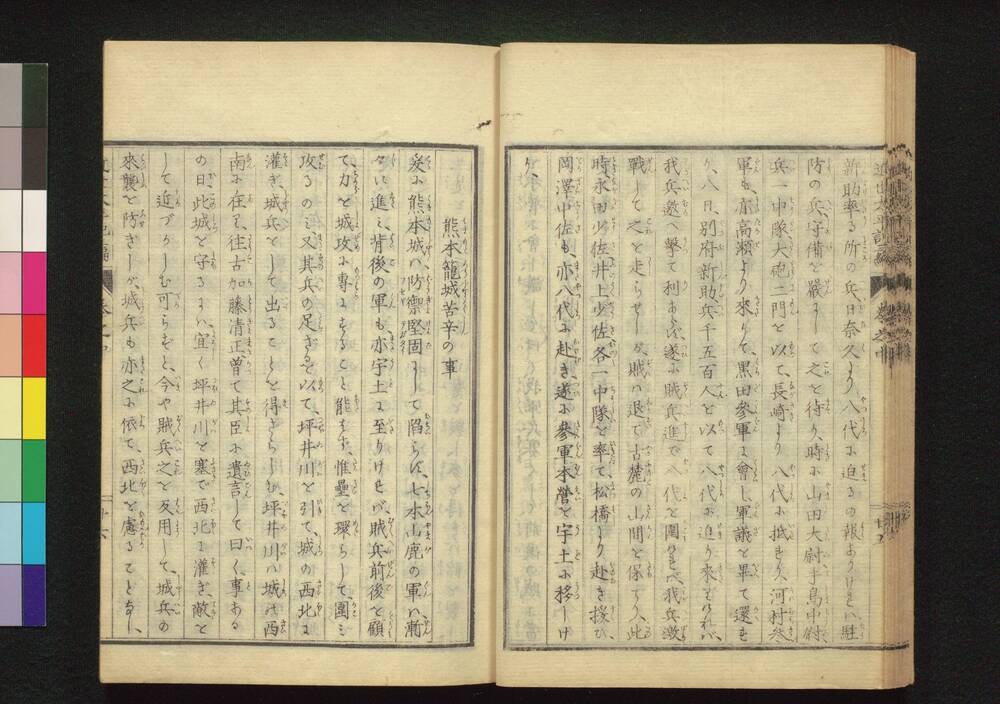 新助率る所の兵、日奈久より、八代に迫るの報ありければ、駐
防の兵、守備を嚴にして之を待り、時に山田大尉手島中尉
兵一中隊大砲二門を以て、長崎より八代に抵る、又、河村參
軍も、亦高瀬より來りて、黒田參軍に會し軍議を畢て還る
り、八日、別府新助兵千五百人を以て八代に迫り來りければ、
我兵邀へ擊て利あらず、遂に賊兵進で八代を圍ければ、我兵激
戰して之を走らせしが、賊ハ退て古麓の山間を保てり、此
時、永田少佐、井上少佐、各一中隊を率て、松橋より赴き援ひ、
岡澤中佐も、亦八代に赴き、遂に參軍本營を宇土に移しけ
り、
熊本籠城苦辛の事
爰に熊本城ハ、防禦堅固にして陷らず、七本山鹿の軍ハ漸
々に進ミ、背後の軍も、亦宇土に至りければ、賊兵前後を顧
て、力を城攻に專にすること能はず、惟壘を環らして、圍ミ
攻るのミ、又其兵の足ざるを以て、坪井川を引て、城の西北に
灌ぎ、城兵をして出ることを得ざらしむ、坪井川ハ城の西
南に在り、往古加藤清正曾て其臣に遺言して曰く、事ある
の日、此城を守るにハ、宜く坪井川を塞で西北に灌ぎ、敵を
して近づかしむ可らずと、今や賊兵之を反用して、城兵の
來襲を防ぎしが、城兵も亦之に依て、西北を慮ることなし、